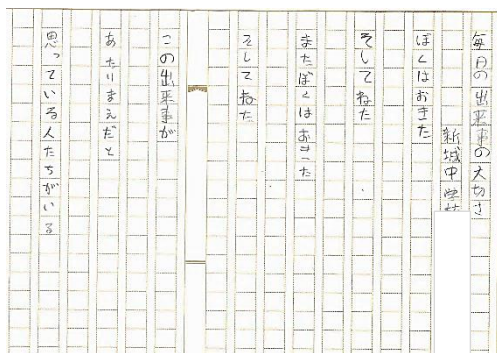 毎日の出来事の大切さ
新城中学校
ぼくはおきた
そしてねた
またぼくはおきった
そしてねた
この出来事が
あたりまえだと
思っている人たちがいる